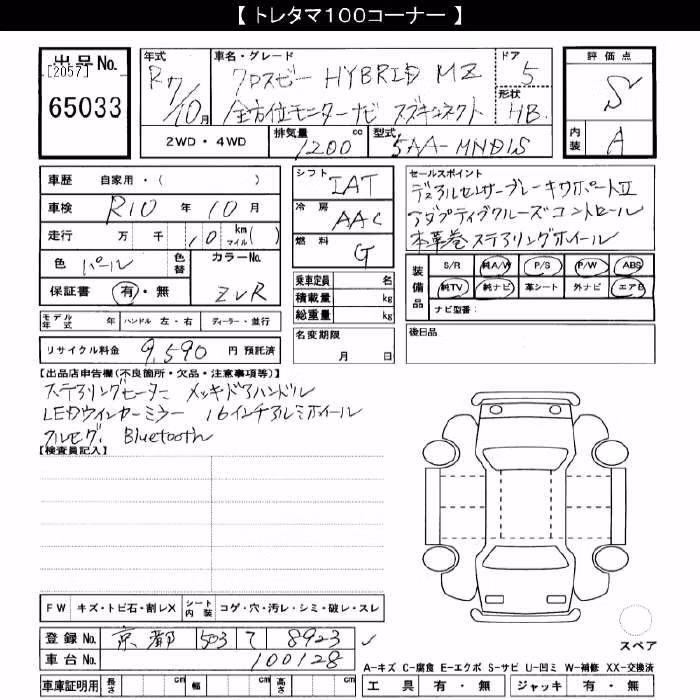 【 トレタマ100コーナー 】
出品No.
[2057]
65033
年式
R7/10月
車名・グレード
フロスビー HYBRID MZ
全方位モニターナビ スズキコネクト
ドア
5
形状
HB
評価点
S
内装
A
2WD・4WD
排気量 1200 cc
型式 5AA-MND1S
車歴 自家用・( )
車検 R10 年 10 月
走行 万 千 10 km マイル( )
色 パール 色替
カラーNo. ZVR
保証書 有・無
モデル年式 年 ハンドル 左・右 ディーラー・並行
リサイクル料金 9,590 円 預託済
シフト IAT
冷房 AAC
燃料 G
乗車定員 名
積載量 kg
総重量 kg
名変期限
月 日
セールスポイント
デュアルセンサーブレーキサポートII
アダプティブクルーズコントロール
本革巻ステアリングホイール
装備品
S/R 純A/W P/S P/W ABS
純TV 純ナビ 革シート 外ナビ エアB
ナビ型番:
後日品
【出品店申告欄(不良箇所・欠品・注意事項等)】
ステアリングヒーター メッキドアハンドル
LEDウインカーミラー 16インチアルミホイール
フルセグ. Bluetooth
【検査員記入】
FW キズ・トビ石・割レX シート内装 コゲ・穴・汚レ・シミ・破レ・スレ
登録No. 京都 503 て 8923
車台No. 100128
車庫証明用 長さ cm 幅 cm 高さ cm
スペア
A-キズ C-腐食 E-エクボ S-サビ U-凹ミ W-補修 XX-交換済
工具 有・無 ジャッキ 有・無